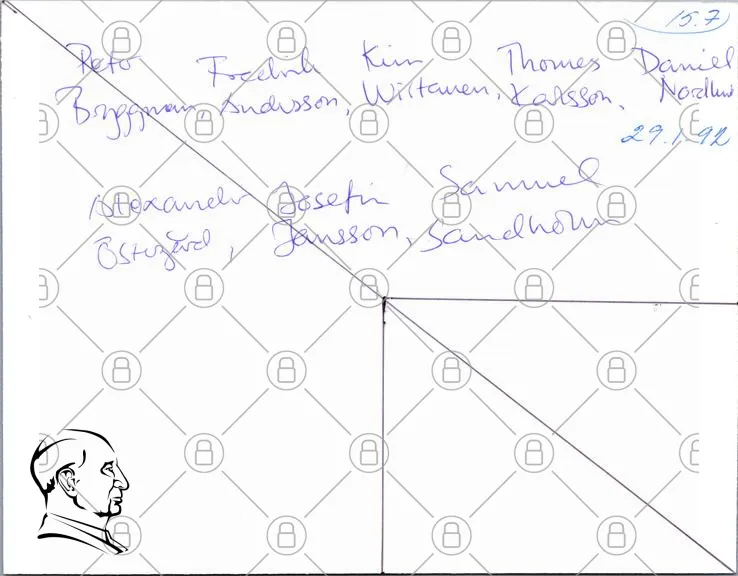 15.7
Peter Fredrik Kim Thomas Daniel
Bryggman, Andersson, Wiitanen, Karlsson, Nordlund
29.1.92
Alexander Josefin Samuel
Östergård, Jansson, Sandholm